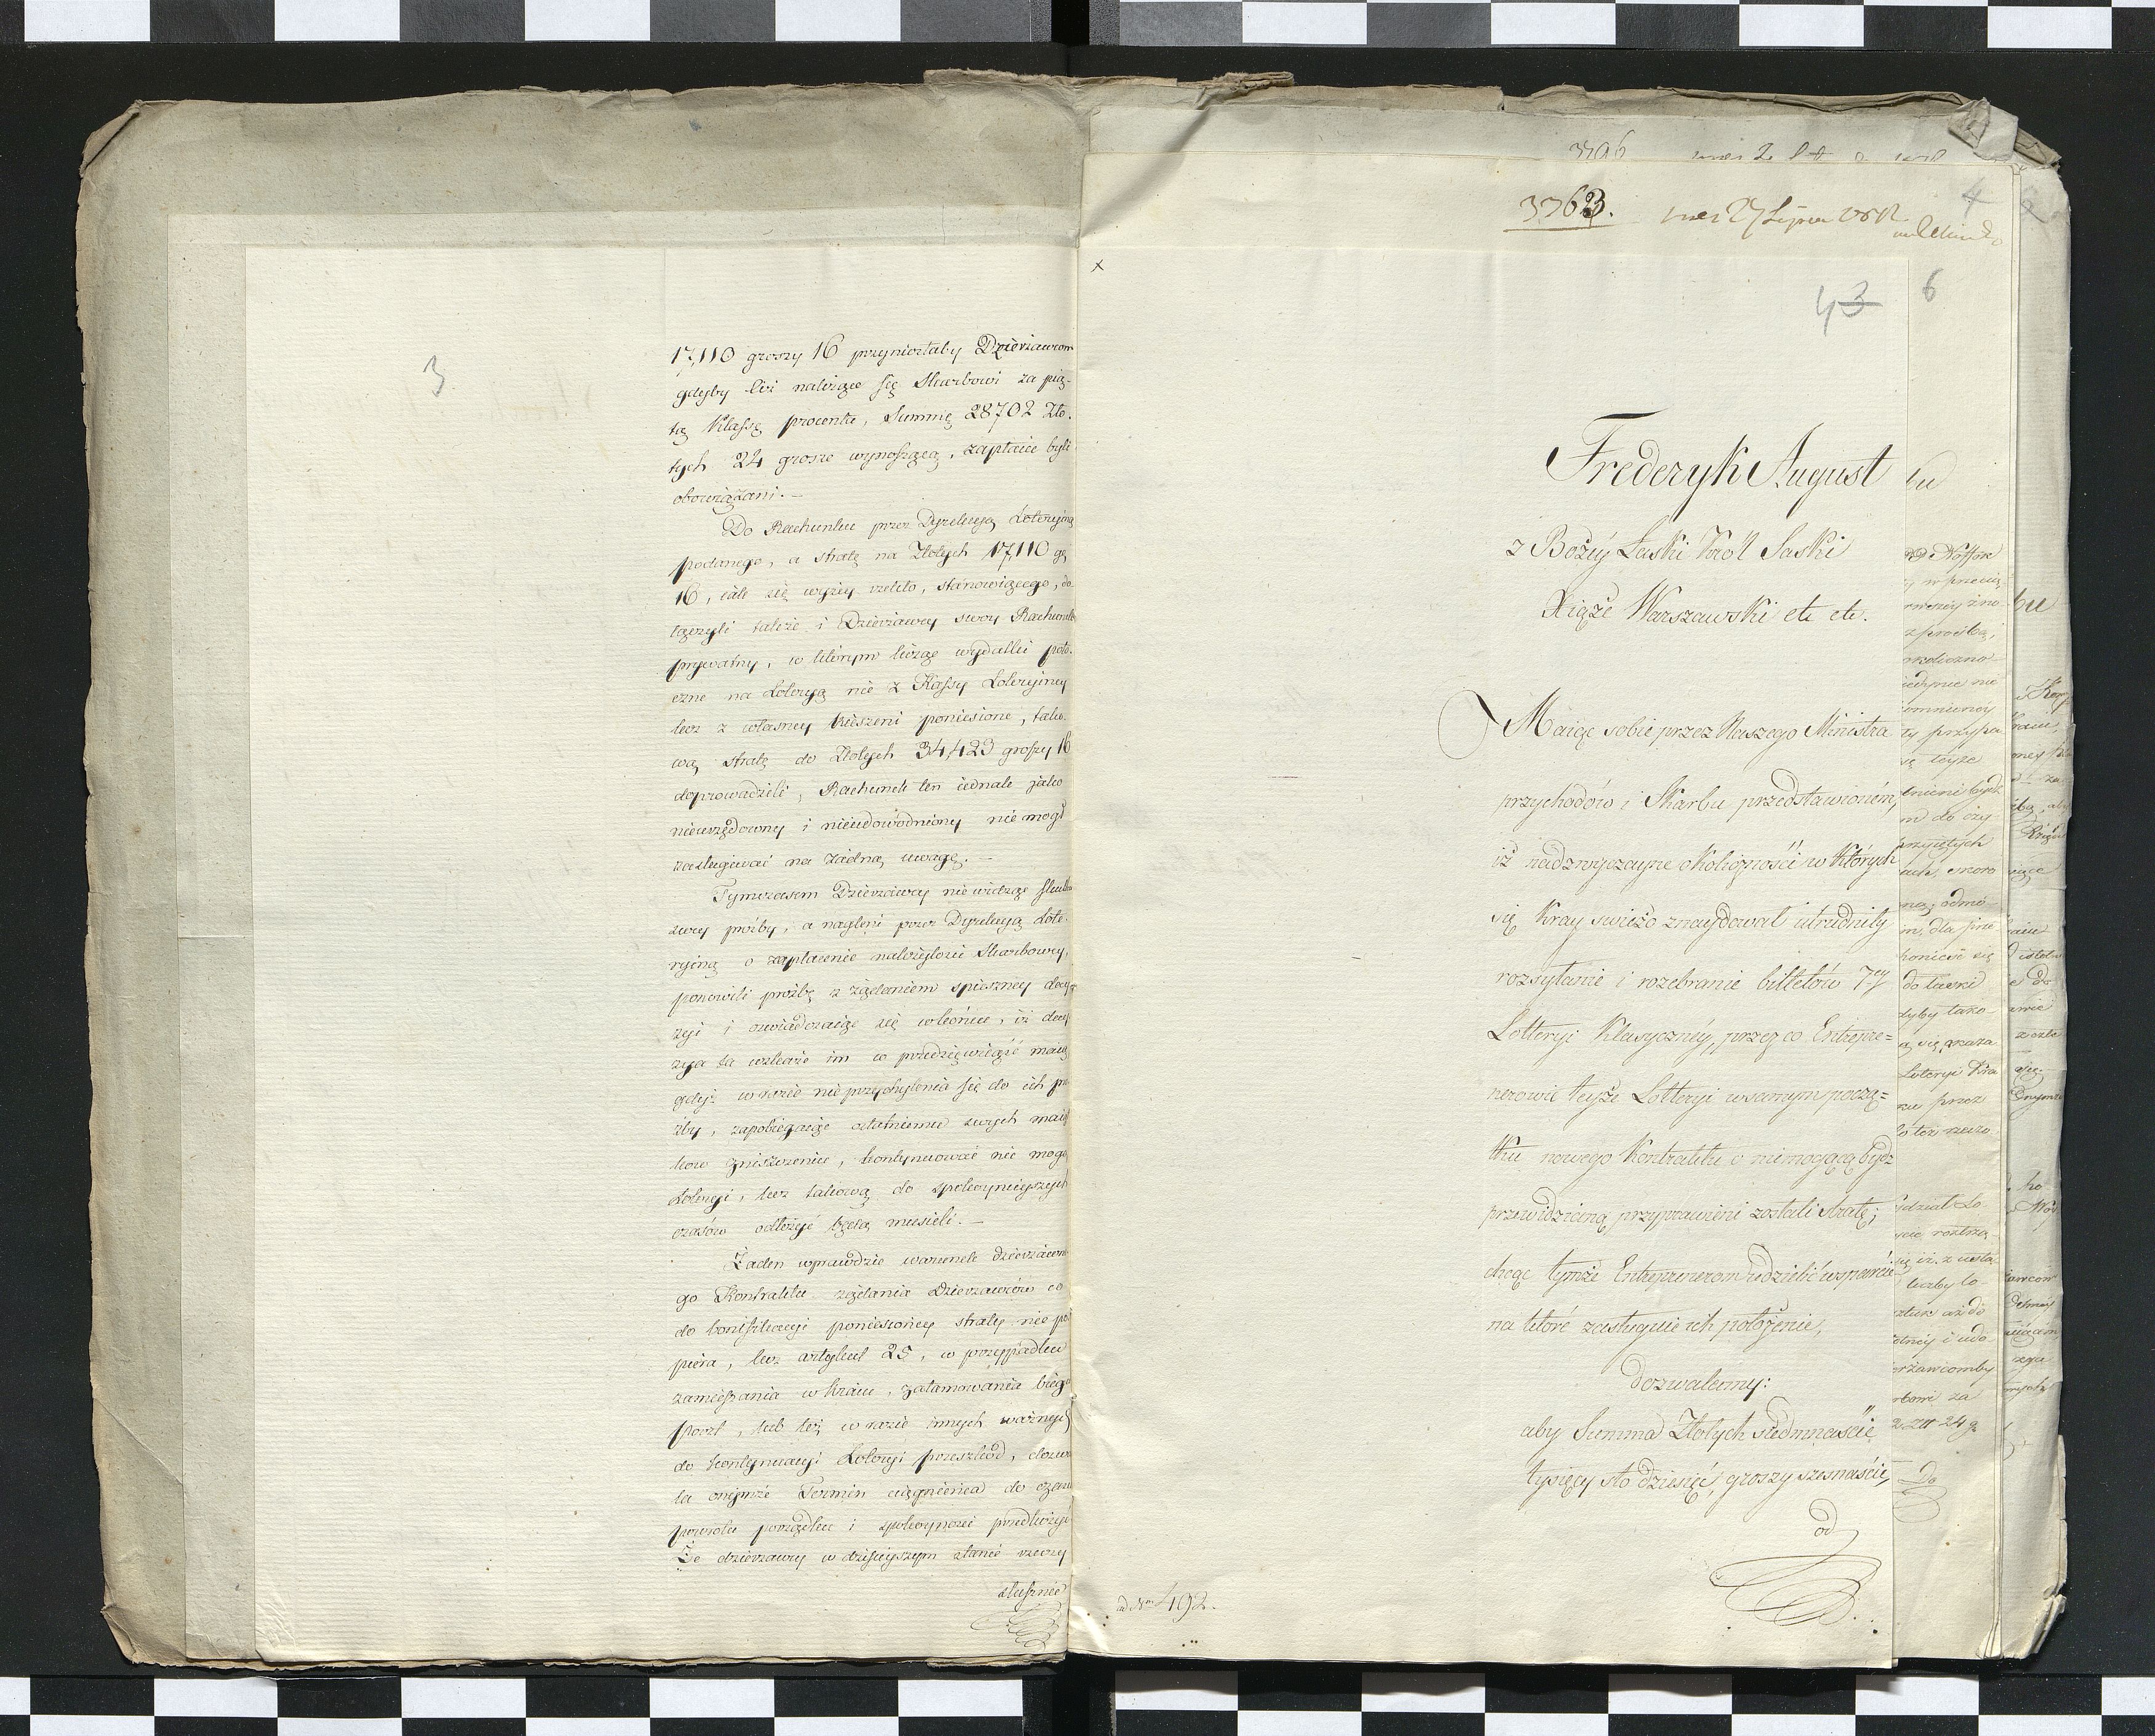 3
17,110 groszy 16 przyniosłaby Dzierżawcom
gdyby liż należące się Skarbowi za pią-
tą Klassę procenta, Summę 28702 Zło-
tych 24 grosze wynoszącą, zapłacić byli
obowiązani. –
Do Rachunku przez Dyrekcyą Loteryiną
podanego, a stratę na Złotych 17,110 gę
16, iak się wyżey rzekło, stanowiącego, do
łączyli także i Dzierżawcy swoy Rachunek
prywatny, w którym licząc wydatki poto-
czne na Loteryą nie z Kassy Loteryiney
lecz z własney kieszeni poniesione, tako-
wą stratę do Złotych 34,423 groszy 16
doprowadzili, Rachunek ten iednak jako
nieurzędowny i nieudowodniony nie mogł
zasługiwać na żadną uwagę. –
Tymczasem Dzierżawcy nie widząc skutku
swey proźby, a nagleni przez Dyrekcyą Lote-
ryiną o zapłacenie należytości Skarbowey,
ponowili proźbę z żądaniem spieszney decy-
zyi i oswiadczaiąc się w końcu, iż decy-
zya ta wskaże im co przedsięwziąść maią
gdyż w razie nie przychylenia się do ich pro
źby, zapobiegaiąc ostatniemu swych maiąt
kow zniszczeniu, kontynuować nie mogą
Loteryi, lecz takową do spokoynieyszych
czasów odłożyć będą musieli. –
Żaden wprawdzie warunek dzierżawne-
go Kontraktu żądania Dzierżawców co
do bonifikacyi poniesioney straty nie po
piera, lecz artykuł 25, w przypadku
zamieszania w kraiu, zatamowania biegu
poczt, lub też w razie innych ważnych
do kontynuacyi Loteryi przeszkod, dozwa
la onymże Termin ciągnienia do czasu
powrotu porządku i spokoyności przedłużyć
Że dzierżawcy w dzisieyszym stanie rzeczy
słusznie
3796
3763. 27 Lipca
4
6
4 3
x
Frederyk August
z Bożéy Łaski Król Saski
Xiąże Warszawski etc etc.
Maiąc sobie przez Naszego Ministra
przychodów i Skarbu przedstawioném,
iż nadzwyczayne okoliczności w których
się Kray swieżo znaydował utrudniły
rozsyłanie i rozebranie billetów 7ey
Lotteryi Klassyczney, przez co Entrepre=
nerowie teyże Lotteryi w samym począ=
tku nowego Kontraktu o niemogącą bydź
przewidzianą przyprawieni zostali stratę;
chcąc tymże Entreprenerom udzielić wsparcie
na które zasługuie ich położenie,
dozwalamy:
aby Summa Złotych siedmnaście
tysięcy sto dziesięć, groszy szesnaście,
od
ad Nm 492.